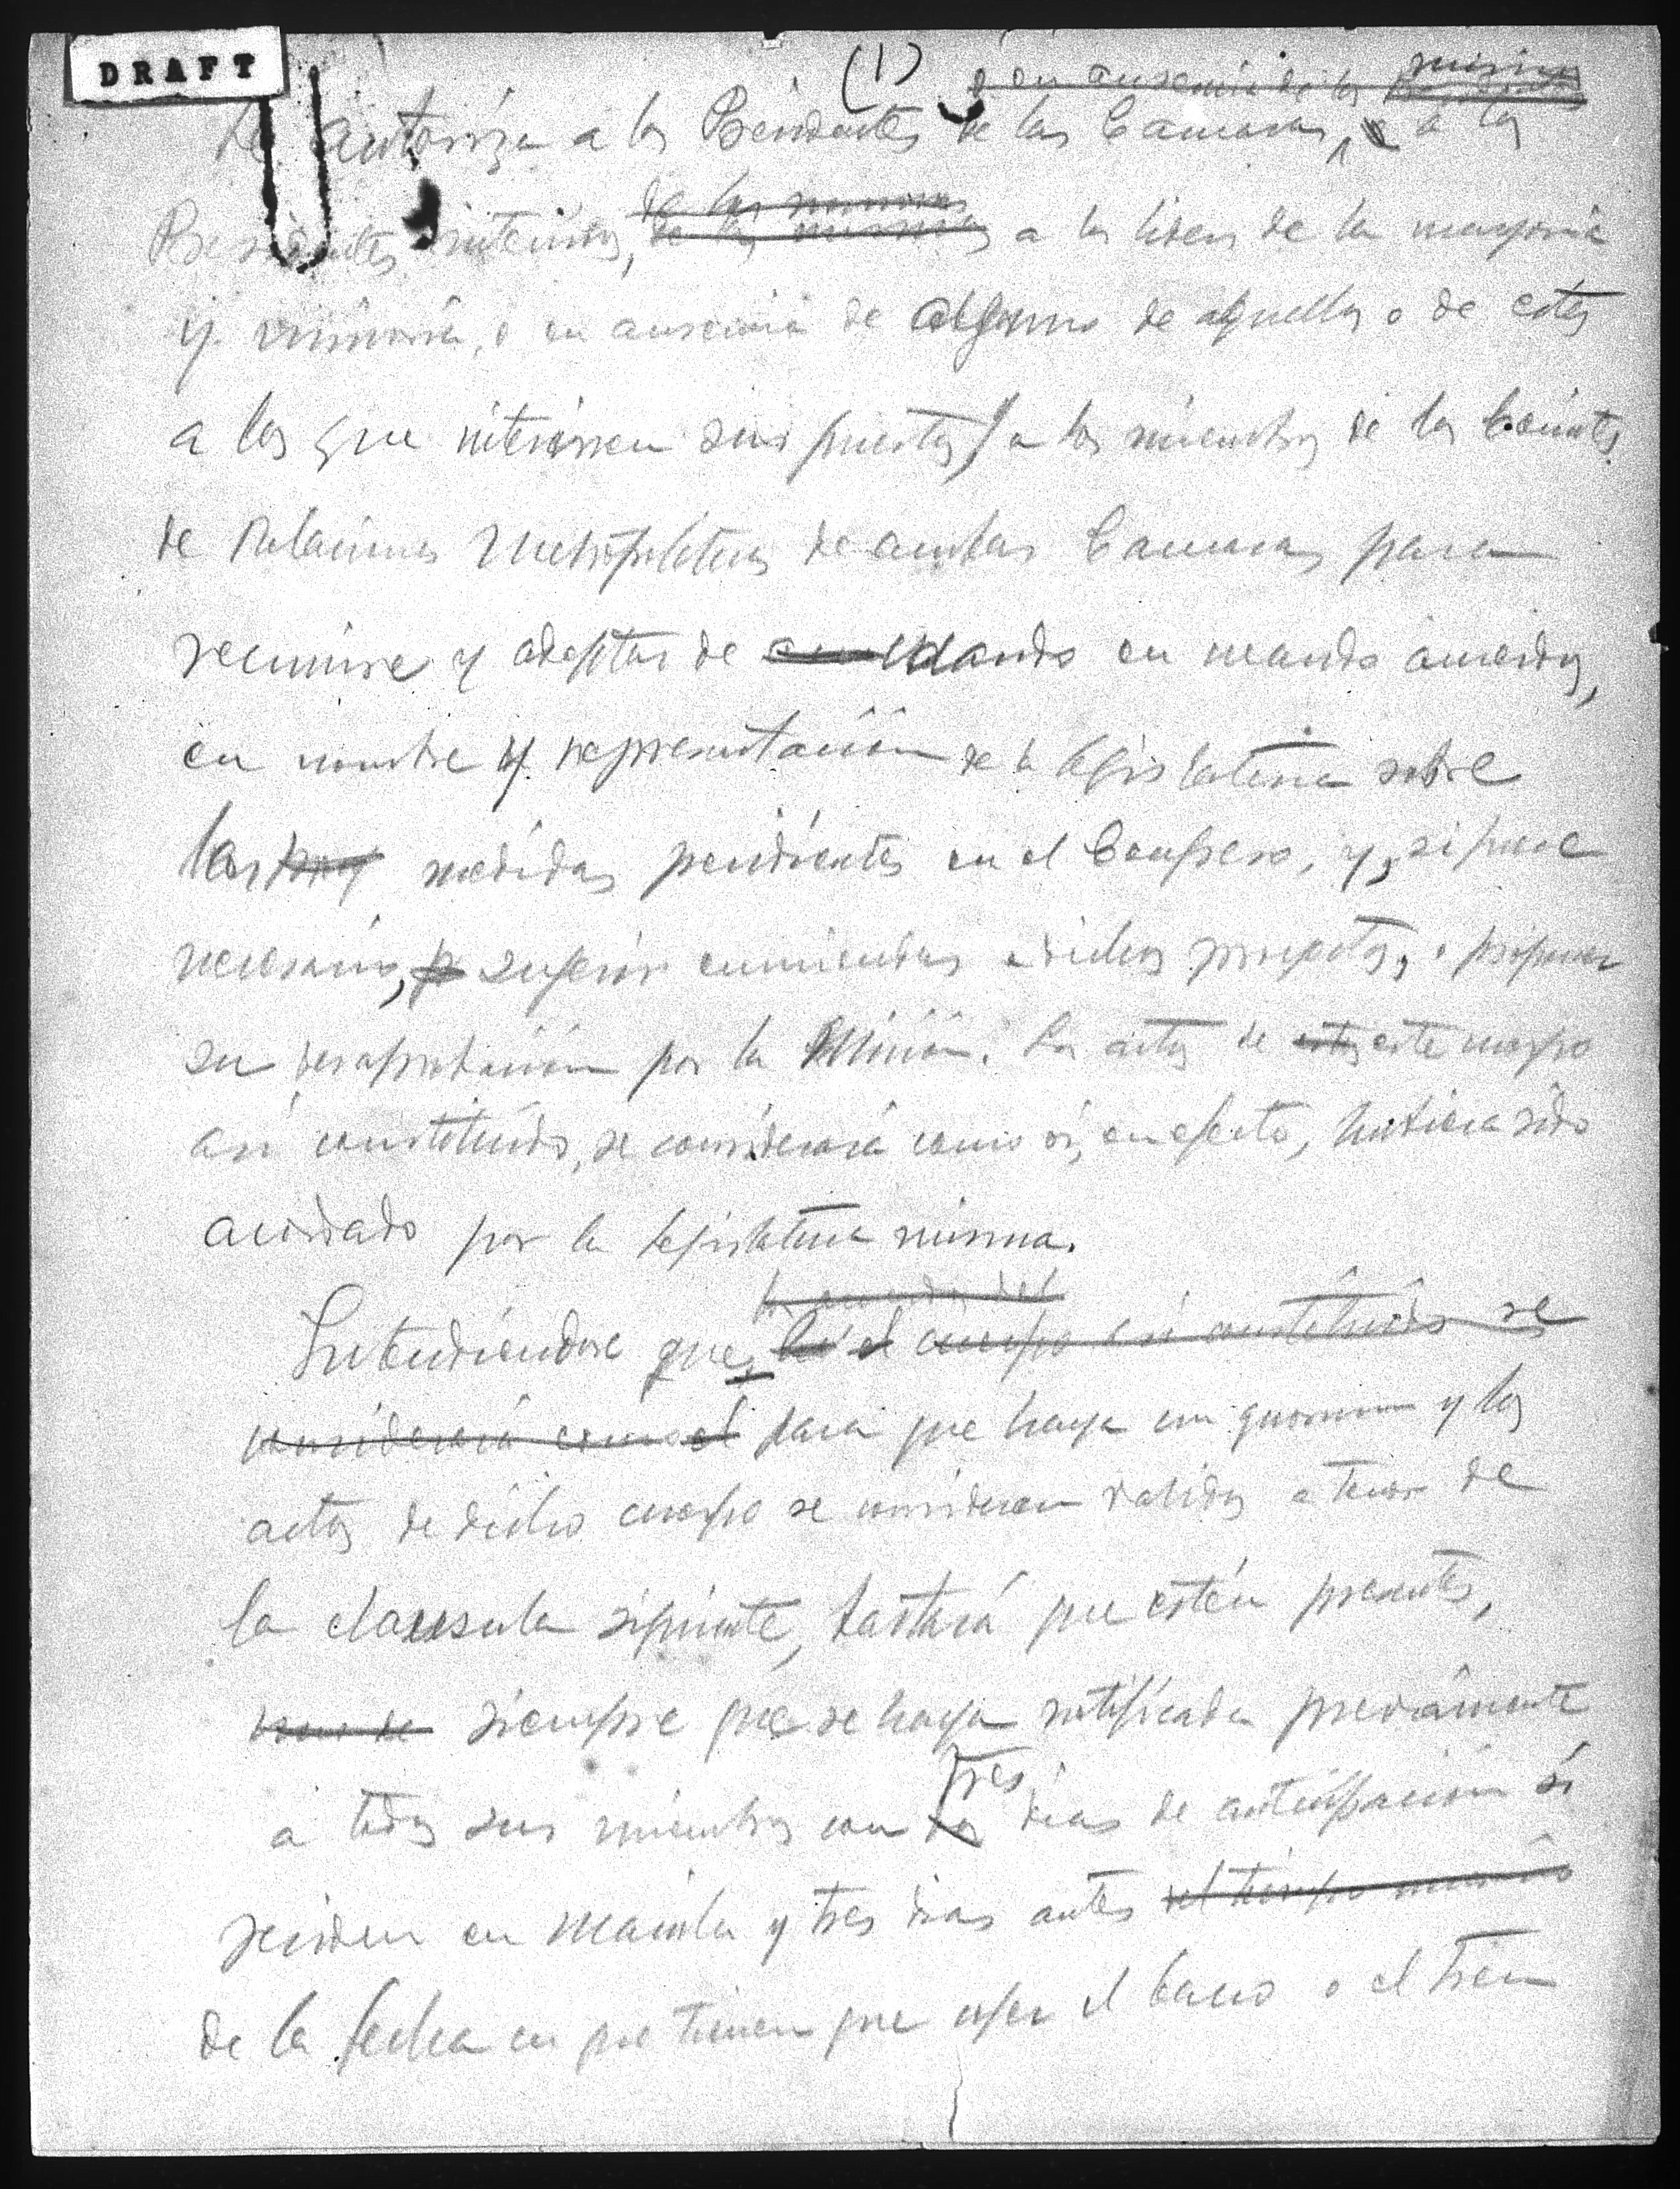 DRAFT
(1)
o en ausencia de los mismos
Se autoriza a los Presidentes de las Camaras, o a los
de los mismos
Presidentes interinos, de los mismos a los liders de la mayoria
y minoria, o en ausencia de alguno de aquellos o de estos
a los que interinen sus puestos, y a los miembros de los Comites
de Relaciones Metropoliticas de ambas Camaras para
reunirse y adoptar de cuando en cuando acuerdos,
en nombre y representación de la Legislatura sobre
las medidas pendientes en el Congreso, y, si fuere
necesario, p sugerir enmiendas a dichos proyectos, o proponer
su desaprobación por la misma. Los actos de estos este cuerpo
asi constituido, se considerará como si, en efecto, hubiera sido
acordado por la Legislatura misma.
los acuerdos del
Entendiendose que, el cuerpo asi constituido se
considerará como el para que haya un quorum y los
actos de dicho cuerpo se consideren validos a tenor de
la clausula siguiente, bastará que estén presentes,
siempre que se haya notificado previamente
tres
a todos sus miembros con dos dias de anticipación si
residen en Manila y tres dias antes del tiempo
de la fecha en que tienen que coger el barco o el tren